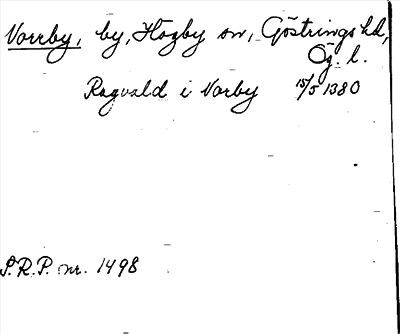 Vorrby, by, Högby sn, Göstrings hd,
Ög. l.
Ragvald i Vorby 15/5 1380
S.R.P. nr. 1498